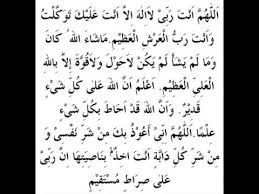 اَللّٰهُمَّ اَنْتَ رَبِّيْ لَااِلٰهَ اِلَّا اَنْتَ عَلَيْكَ تَوَكَّلْتُ
وَاَنْتَ رَبُّ الْعَرْشِ الْعَظِيْمِ. مَاشَاءَ اللهُ كَانَ
وَمَا لَمْ يَشَأْ لَمْ يَكُنْ لَاحَوْلَ وَلَاقُوَّةَ اِلَّا بِاللهِ
الْعَلِيِّ الْعَظِيْمِ. اَعْلَمُ اَنَّ اللهَ عَلٰى كُلِّ شَيْءٍ
قَدِيْرٌ. وَاَنَّ اللهَ قَدْ اَحَاطَ بِكُلِّ شَيْءٍ
عِلْمًا. اَللّٰهُمَّ اِنِّيْ اَعُوْذُ بِكَ مِنْ شَرِّ نَفْسِيْ وَ
مِنْ شَرِّ كُلِّ دَابَّةٍ اَنْتَ اٰخِذٌ بِنَاصِيَتِهَا اِنَّ رَبِّيْ
عَلٰى صِرَاطٍ مُسْتَقِيْمٍ